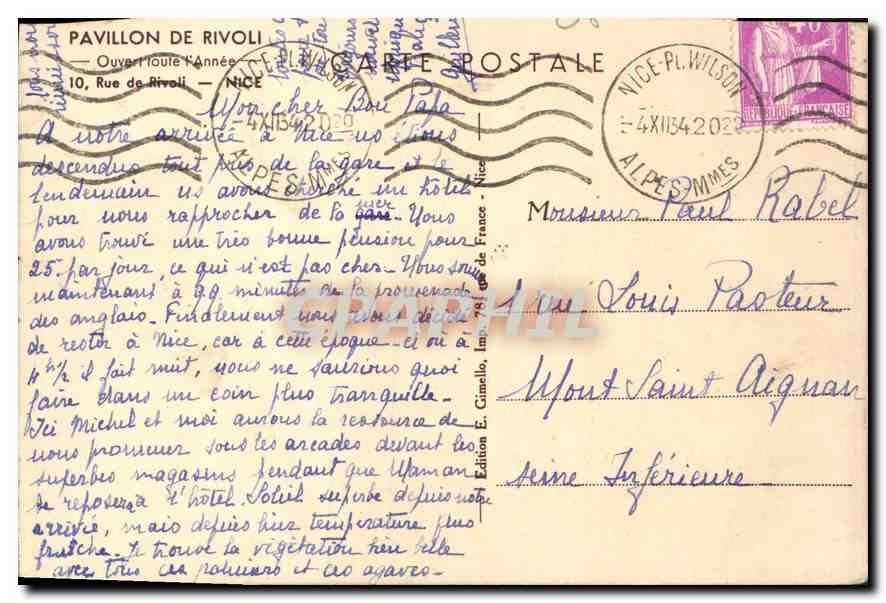 PAVILLON DE RIVOLI
— Ouvert toute l'Année —
10, Rue de Rivoli — NICE
CARTE POSTALE
NICE-Pl. WILSON
-4XII34 20
ALPES MMES
NICE-Pl. WILSON
-4XII34 20
ALPES MMES
REPUBLIQUE FRANÇAISE
Mon cher Bon Papa
A notre arrivée à Nice ns étions
descendus tout près de la gare et le
lendemain ns avons cherché un hôtel
pour nous rapprocher de la gare mer - Nous
avons trouvé une très bonne pension pour
25 par jour, ce qui n'est pas cher - Nous sommes
maintenant à minutes de la promenade
des anglais - Finalement nous avons décidé
de rester à Nice, car à cette époque-ci où à
4h 1/2 il fait nuit, nous ne saurions quoi
faire dans un coin plus tranquille -
Ici Michel et moi aurons la ressource de
nous promener sous les arcades devant les
superbes magasins pendant que Maman
se reposera à l'hôtel. Soleil superbe depuis notre
arrivée, mais depuis hier température plus
fraîche - Je trouve la végétation bien belle
avec tous ces palmiers et ces agaves -
Edition E. Gimello, Imp. 78, rue de France - Nice
Monsieur Paul Rabel
1 rue Louis Pasteur
Mont Saint Aignan
Seine Inférieure
CPAPHIL